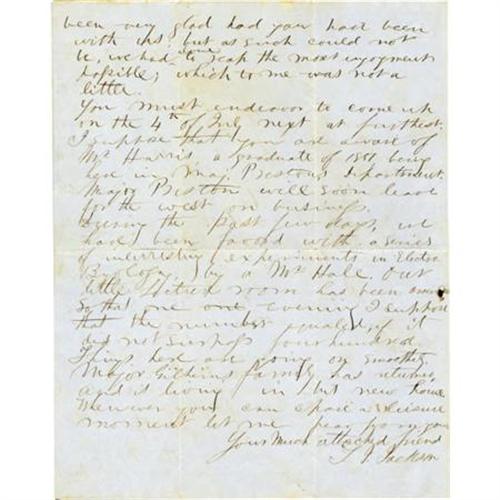 been very glad had you have been
with us; but as such could not
be, we had to reap the most enjoyment
possible; which to me was not a
little.
You must endeavor to come up
on the 4th of July next at furthest.
I suppose that you are aware of
Mr Harris, a graduate of 1851 being
here in Maj. Preston's Department.
Major Preston will soon leave
for the west on business.
During the past few days, we
have been favored with a series
of interesting experiments in Electro
Biology, by a Mr Hall. Our
little lecture room has been
so that one evening I suppose
that the number equaled, if it
did not surpass four hundred.
Things here are going on smoothly,
Major Gilham's family has returned
and is living in his new house
Whenever you can spare a leisure
moment let me hear from you
Your much attached friend
T. J. Jackson